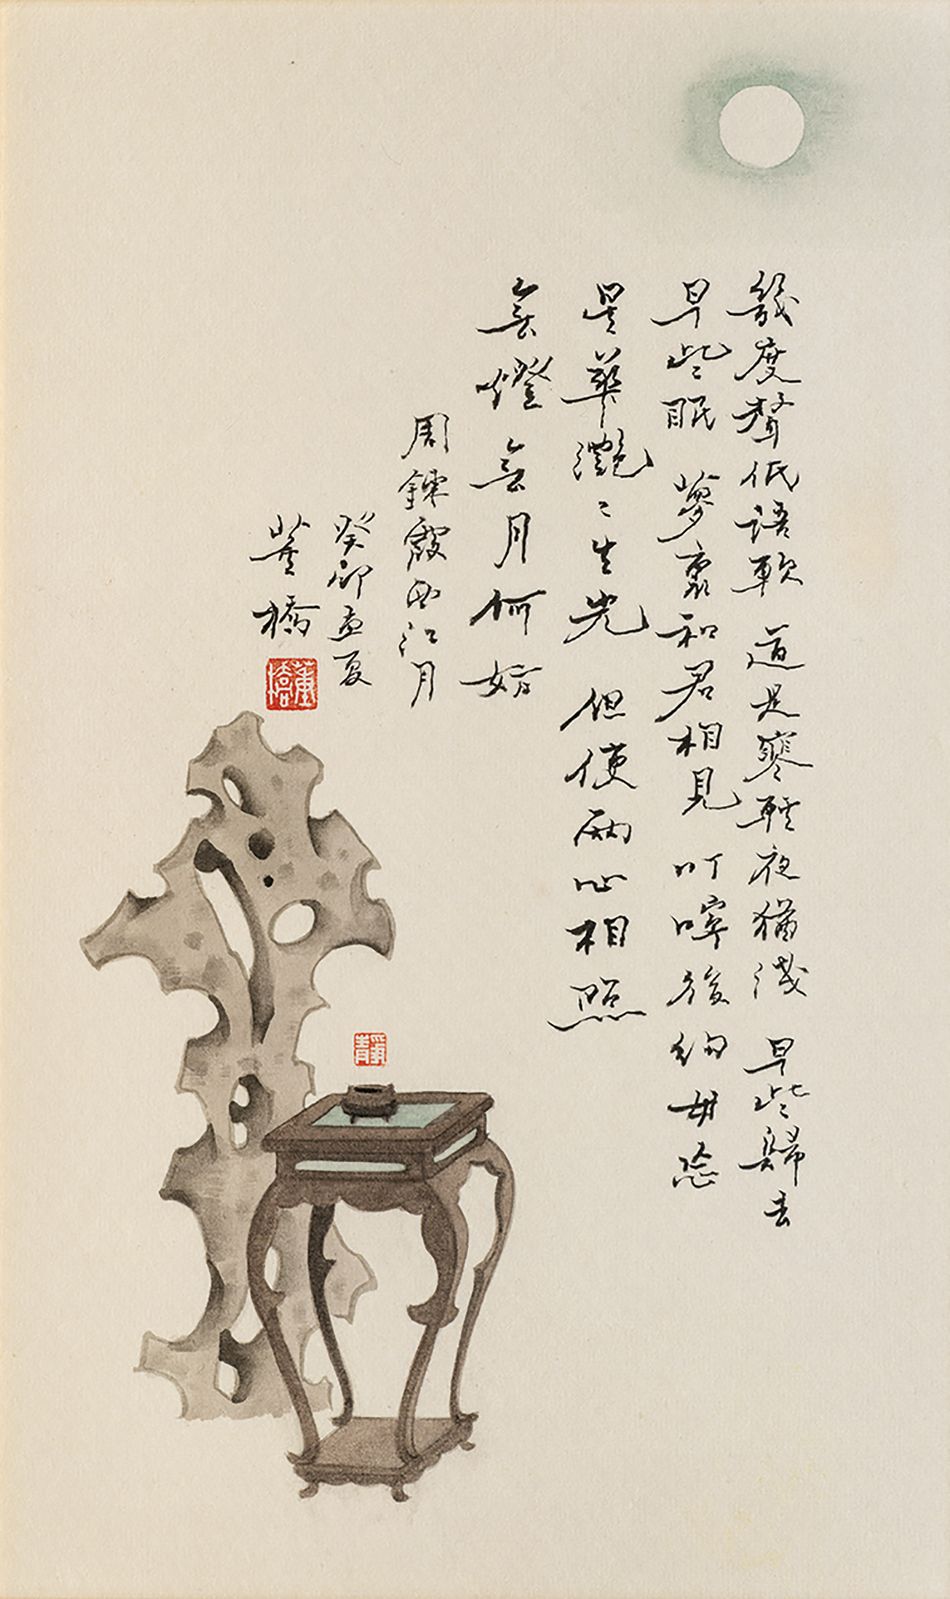 幾度聲低語軟 道是寒輕夜猶淺 早些歸去
早些眠 夢裏和君相見 叮嚀後約毋忘
星華灧〻生光 但使兩心相照
無燈無月何妨
周鍊霞西江月
癸卯孟夏
董橋
董橋
靜